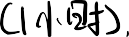 (1小时),